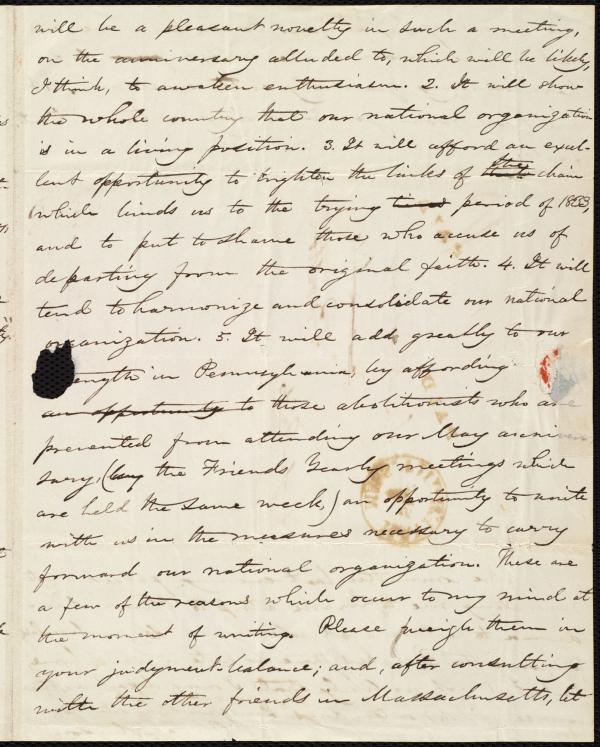 will be a pleasant novelty in such a meeting,
on the anniversary alluded to, which will be likely,
I think, to awaken enthusiasm. 2. It will show
the whole country that our national organization
is in a living position. 3. It will afford an excel-
lent opportunity to brighten the links of the chain
which binds us to the trying period of 1833,
and to put to shame those who accuse us of
departing from the original faith. 4. It will
tend to harmonize and consolidate our national
organization. 5. It will add greatly to our
ength in Pennsylvania, by affording
an opportunity to those abolitionists who are
prevented from attending our May anniver-
sary, (by the Friends Yearly meetings which
are held the same week,) an opportunity to unite
with us in the measures necessary to carry
forward our national organization. These are
a few of the reasons which occur to my mind at
the moment of writing. Please weigh them in
your judgment-balance; and, after consulting
with the other friends in Massachusetts, let